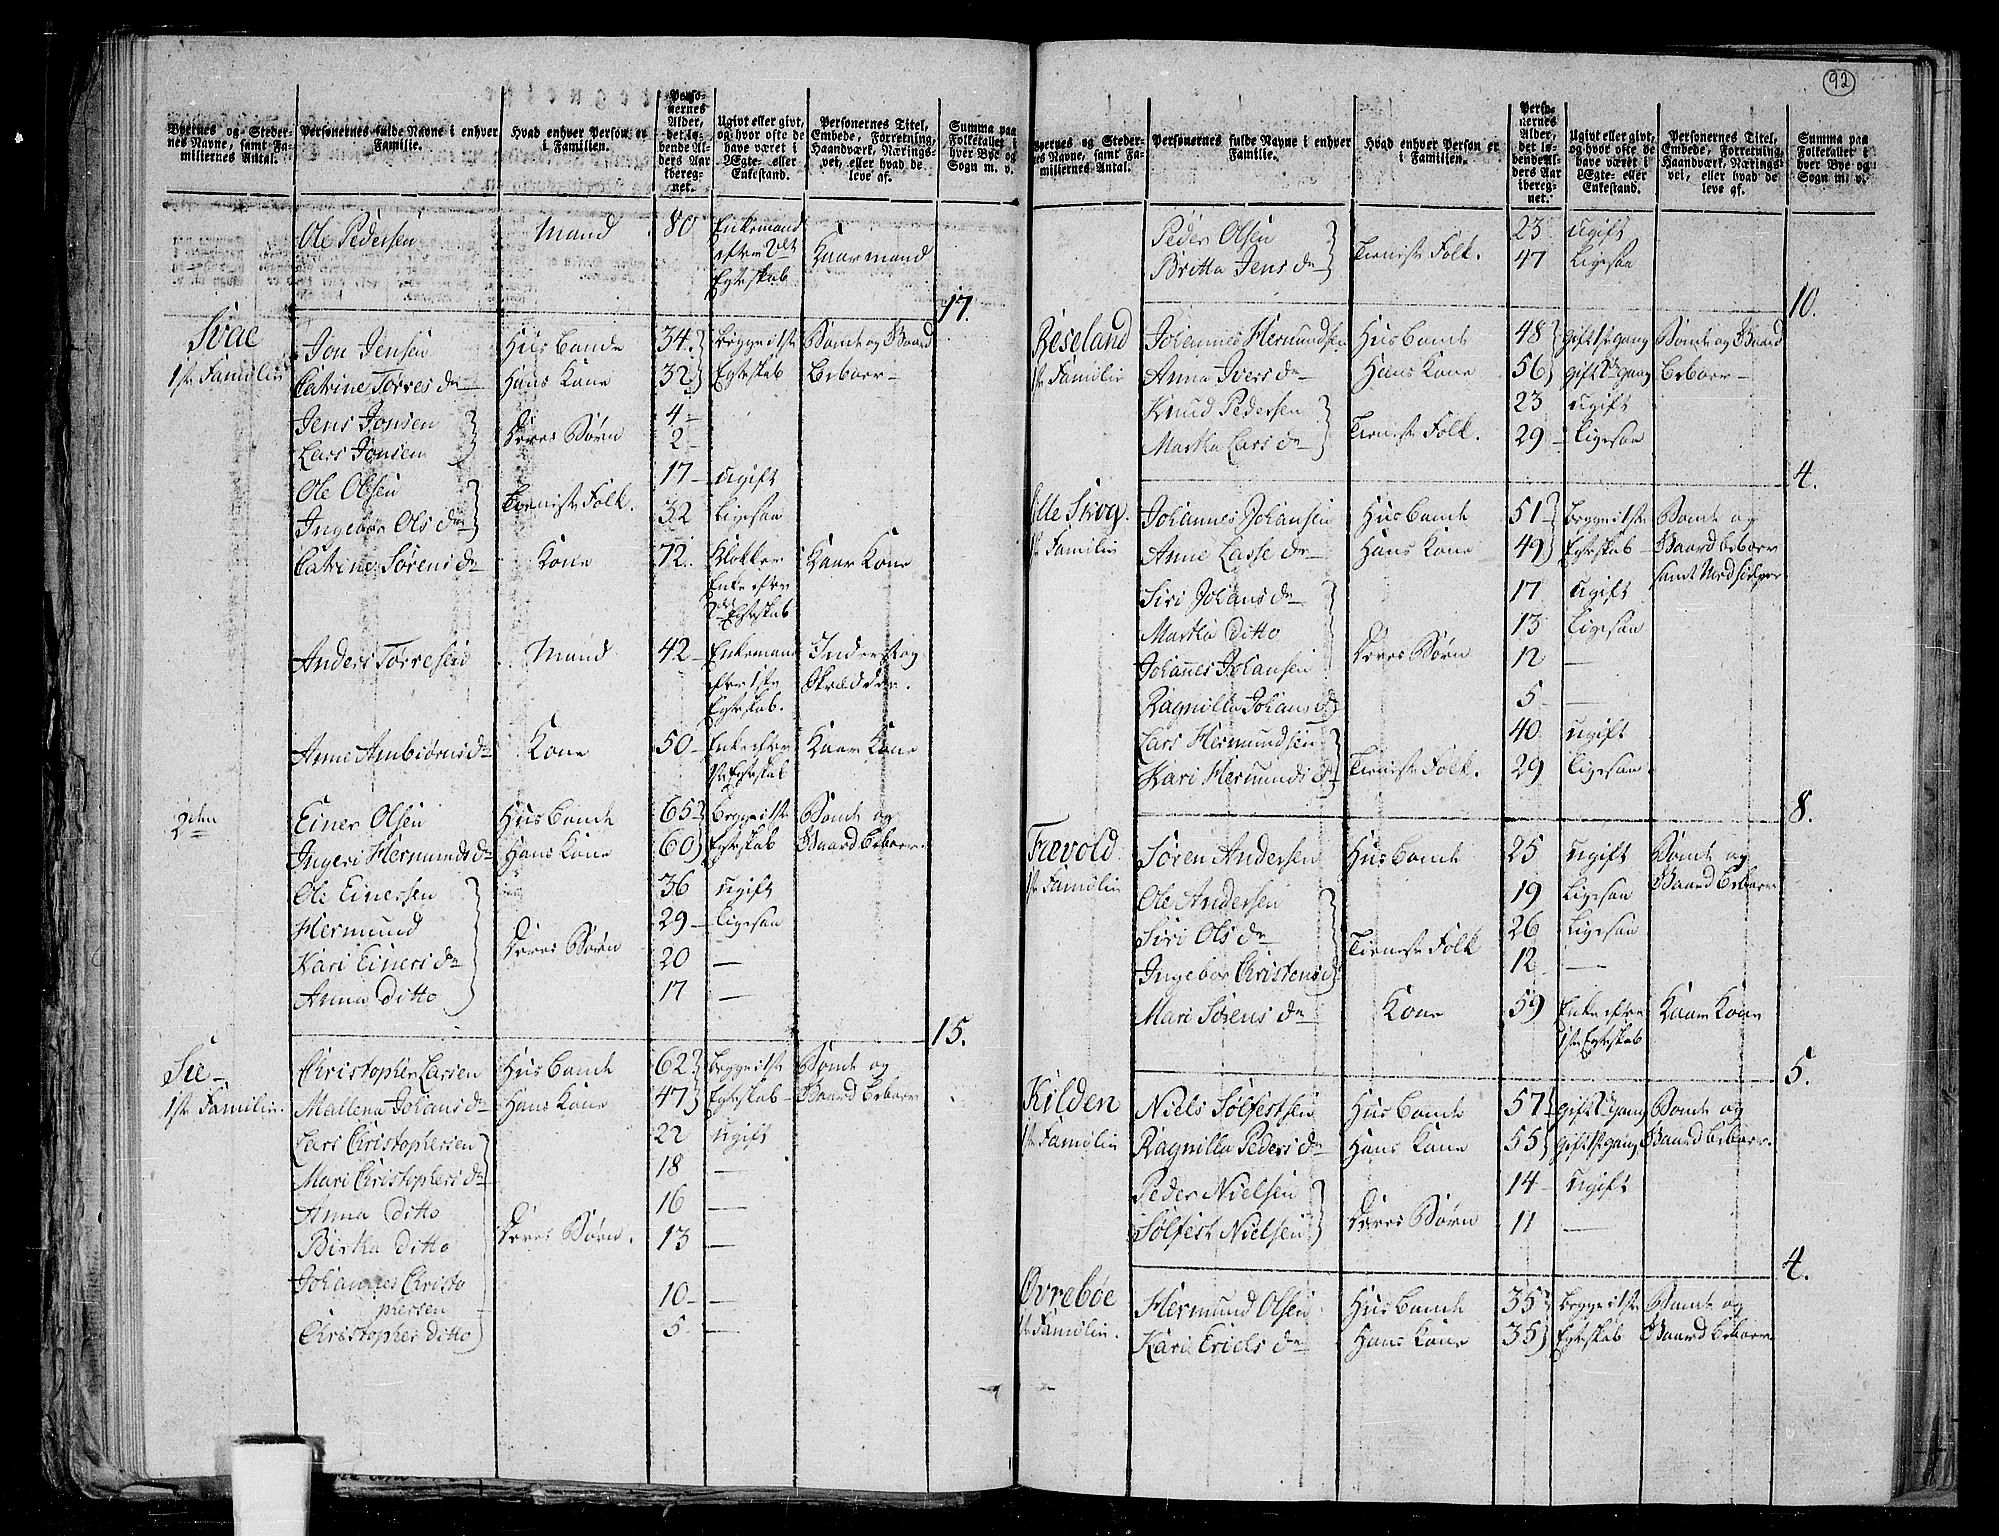 92
Byernes og Stedernes Navne, samt Familiernes Antal. Personernes fulde Navne i enhver Familie. Hvad enhver Person er i Familien. Personernes Alder, det løbende Alders Aar iberegnet. Ugivt eller givt, og hvor ofte de have været i Ægte- eller Enkestand. Personernes Titel, Embede, Forretning, Haandværk, Næringsvei, eller hvad de leve af. Summa paa Folketallet i hver Bye og Sogn m. v.
Ole Pedersen Mand 80 Enkemand Kaarmand
efter 2det
Egteskab
17.
Svae Jon Jensen Husbonde 34 Begge i 1ste Bonde og Gaard
1ste Familie Catrine Torresdr Hans Kone 32 Egteskab Beboer
Jens Jonsen 4
Lars Jonsen Deres Børn 2
Ole Olsen 17 ugift
Ingebor Olsdr Tieniste Folk. 32 Ligesaa
Catrine Sørensdr Kone 72 Klokker Kaar Kone
Enke efter
2det Egteskab
Anders Torresen Mand 42 Enkemand Inderst og
efter 1ste Skrædder.
Egteskab.
Anne Ambiørnsdr Kone 50 Enke efter Kaar Kone
1ste Egteskab
2den Einer Olsen Husbonde 65 Begge i 1ste Bonde og
Ingeri Hermundsdr Hans Kone 60 Egteskab Gaard Beboer.
Ole Einersen 36 ugift
Hermund 29 Ligesaa
Kari Einersdr Deres Børn 20 —
Anna Ditto 17 —
15.
Sie Christopher Larsen Husbonde 62 Begge i 1ste Bonde og
1ste Familie. Mallena Johansdr Hans Kone 47 Egteskab Gaard Beboer
Lars Christophersen 22 ugift
Mari Christophersdr 18 —
Anna Ditto 16 —
Birtha Ditto Deres Børn. 13 —
Johannes Christo
phersen 10 —
Christopher Ditto 5 —
Byernes og Stedernes Navne, samt Familiernes Antal. Personernes fulde Navne i enhver Familie. Hvad enhver Person er i Familien. Personernes Alder, det løbende Alders Aar iberegnet. Ugivt eller givt, og hvor ofte de have været i Ægte- eller Enkestand. Personernes Titel, Embede, Forretning, Haandværk, Næringsvei, eller hvad de leve af. Summa paa Folketallet i hver Bye og Sogn m. v.
Peder Olsen 23 ugift
Britta Jensdr Tieniste Folk. 47 Ligesaa
10.
Reseland Johannes Hermundsen Husbonde 48 gift 1ste gang Bonde og Gaard
1ste Familie Anna Iversdr Hans Kone 56 gift 2den gang Beboer
Knud Pedersen 23 ugift
Martha Larsdr Tieniste Folk. 29 Ligesaa
4.
Johannes Johansen Husbonde 51 Begge i 1ste Bonde og
1ste Familie Anne Lassedr Hans Kone 49 Egteskab Gaard Beboer
Siri Johansdr 17 ugift samt
Martha Ditto 13 Ligesaa
Johannes Johansen Deres Børn 12 —
Ragnilla Johansdr 5 —
Lars Hermundsen 40 ugift
Kari Hermundsdr Tieniste Folk. 29 Ligesaa.
8.
Trevold Søren Andersen Husbonde 25 ugift Bonde og
1ste Familie Ole Andersen 19 Ligesaa Gaard Beboer
Siri Olsdr 26 Ligesaa
Ingebor Christensdr Tieniste Folk 12 —
Mari Sørensdr Kone 59 Enke efter Kaar Kone
1ste Egteskab
5.
Kilden Niels Sølfestsen Husbonde 57 gift 2den gang Bonde og
1ste Familie Ragnilla Pedersdr Hans Kone 55 gift 1ste gang Gaard Beboer.
Peder Nielsen 14 ugift
Sølfest Nielsen Deres Børn 11 —
4.
Øvrebøe Hermund Olsen Husbonde 35 Begge i 1ste Bonde og
1ste Familie. Kari Erichsdr Hans Kone 35 Egteskab Gaard Beboer